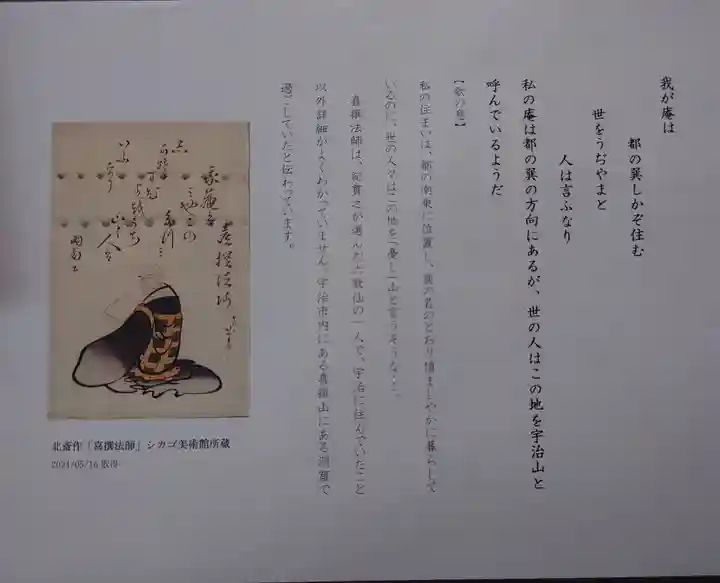 我が庵は
都の巽しかぞ住む
世をうぢやまと
人は言ふなり
私の庵は都の巽の方向にあるが、世の人はこの地を宇治山と
呼んでいるようだ
【歌の意】
私の住まいは、都の南東に位置し、巽の名のとおり慎ましやかに暮らして
いるのに、世の人々はこの地を「憂し」山と言うそうな…。
喜撰法師は、紀貫之が選んだ六歌仙の一人で、宇治に住んでいたこと
以外詳細がよくわかっていません。宇治市内にある喜撰山にある洞窟で
過ごしていたと伝わっています。
喜撰法師
北斎作「喜撰法師」シカゴ美術館所蔵
2021/05/16 取得